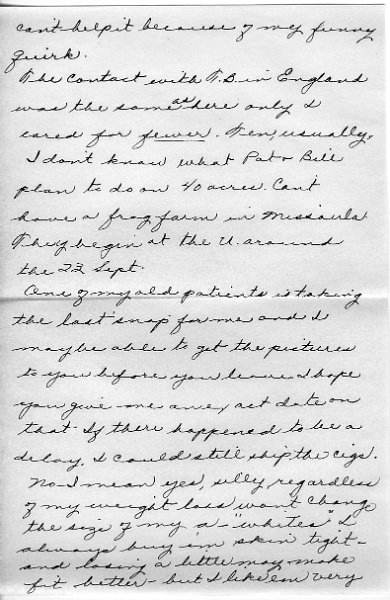 can't help it because of my funny
quirk.
The contact with T.B in England
was the same as here only I
cared for fewer. Ten, usually.
I don't know what Pat & Bill
plan to do on 40 acres. Can't
have a frog farm in Missoula
They begin at the U. around
the 22 Sept.
One of my old patients is taking
the last snap for me and I
maybe able to get the pictures
to you before you leave. I hope
you give me an exact date on
that If there happened to be a
delay, I could still ship the cigs.
No - I mean yes, silly, regardless
of my weight loss wont change
the size of my a- "whites" I
always buy 'im skin tight -
and losing a little may make
fit better - but I like em very